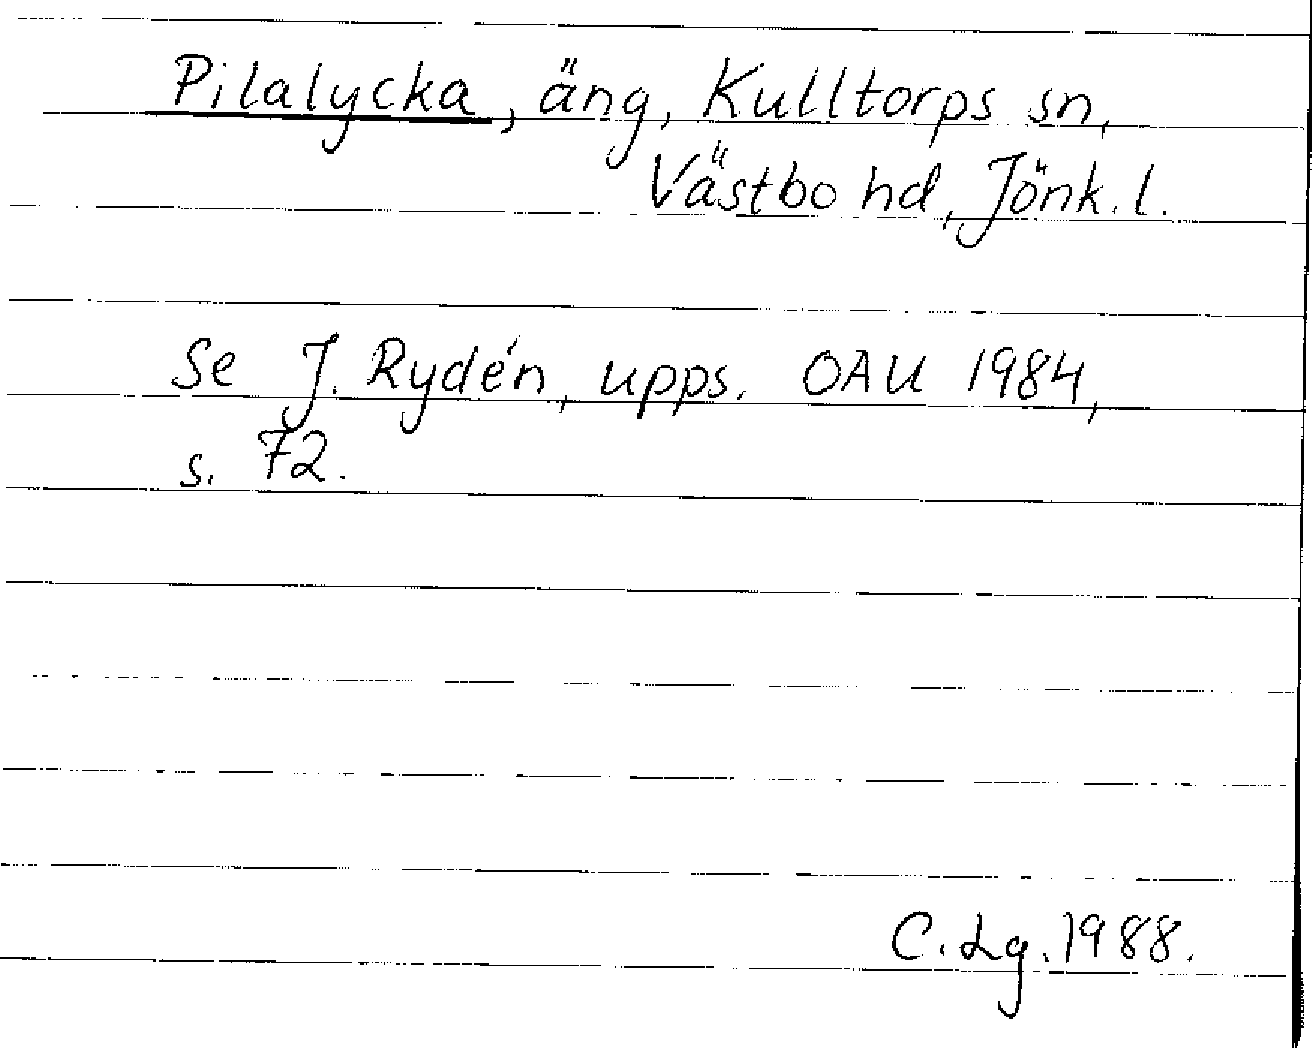 Pilalycka, äng, Kulltorps sn,
Västbo hd, Jönk. l.
Se J. Rydén, upps. OAU 1984,
s. 72.
C. Lg. 1988.